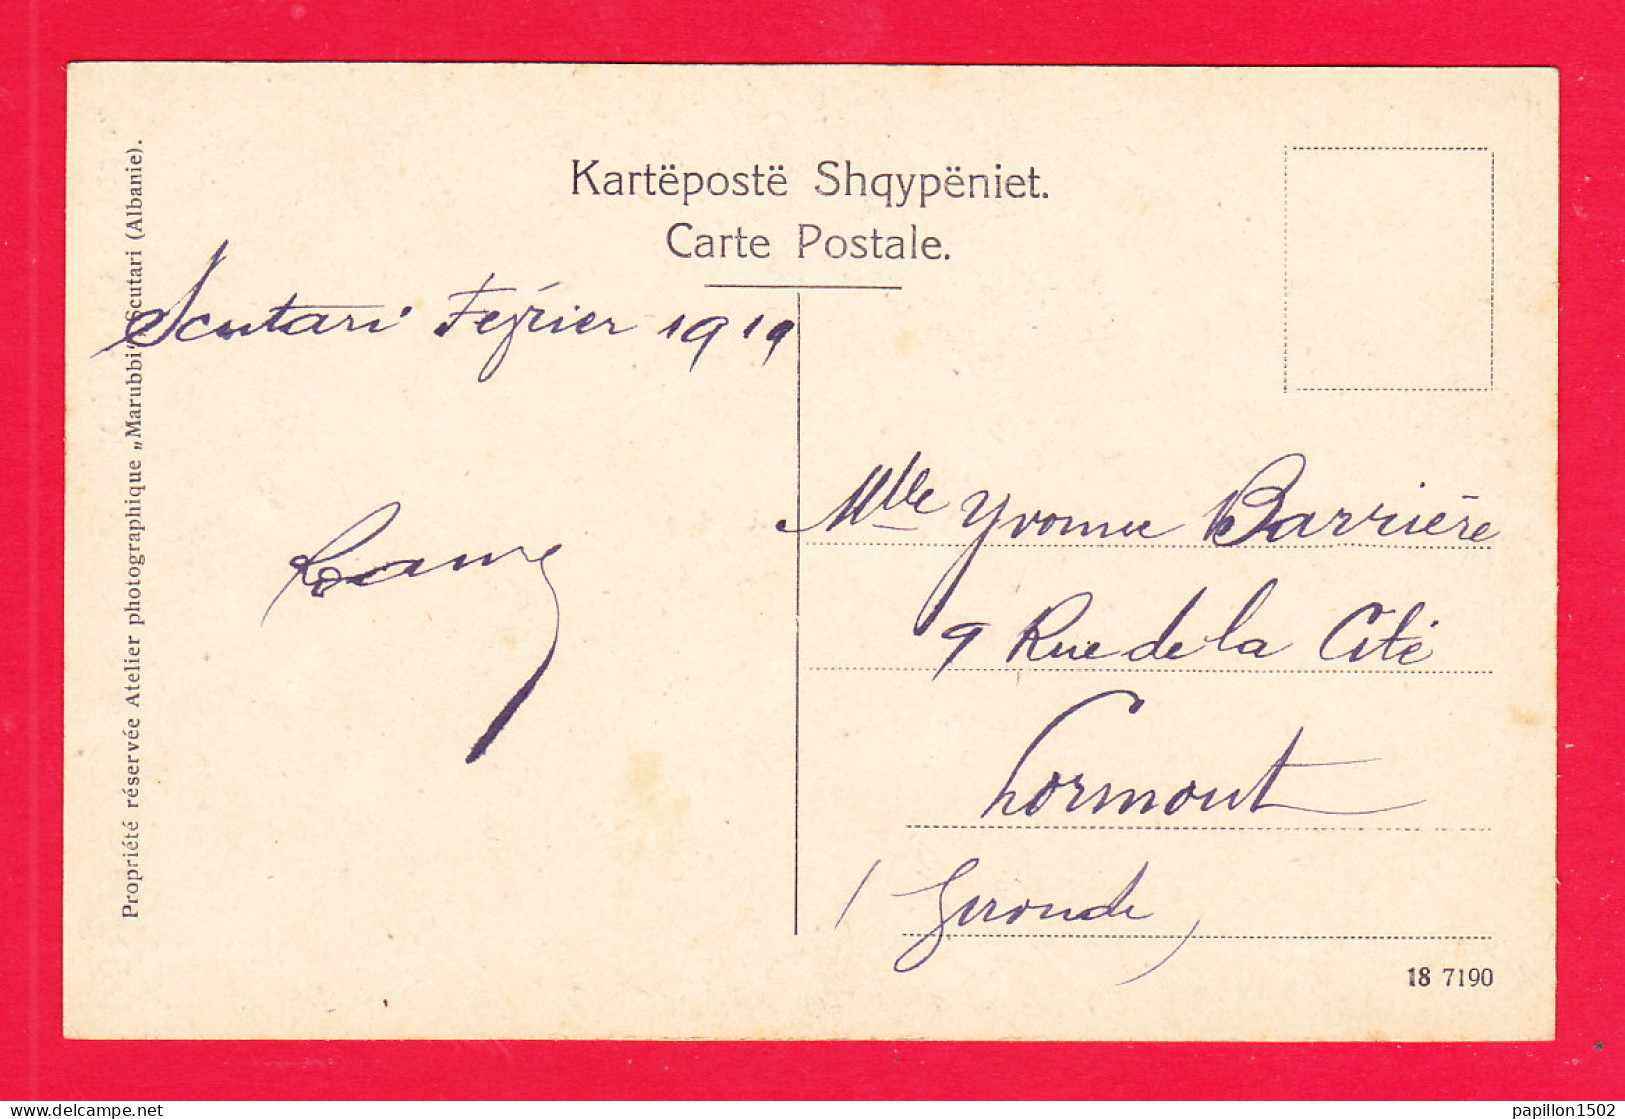 Kartëpostë Shqypëniet.
Carte Postale.
Scutari Février 1919
Mlle Yvonne Barrière
9 Rue de la Cité
Lormont
( Gironde )
18 7190
Propriété réservée Atelier photographique „Marubbi“ Scutari (Albanie).
delcampe.net
papillon1502